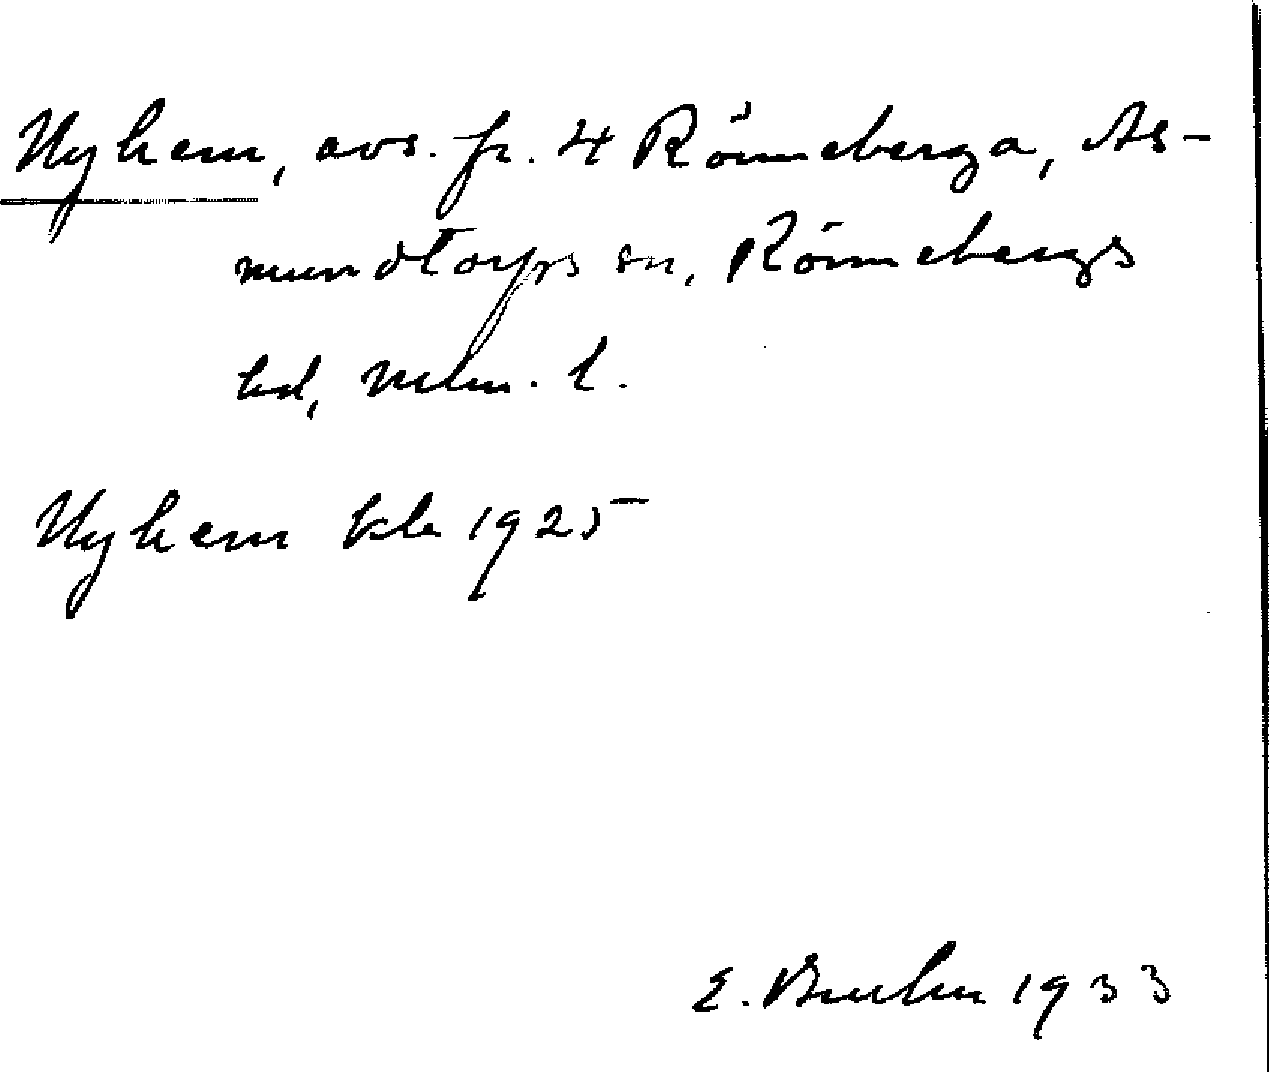 Nyhem, avs. fr. 4 Rönneberga, As-
mundtorps sn, Rönnebergs
hd, Mlm. l.
Nyhem kb 1925
E. Bruhn 1933